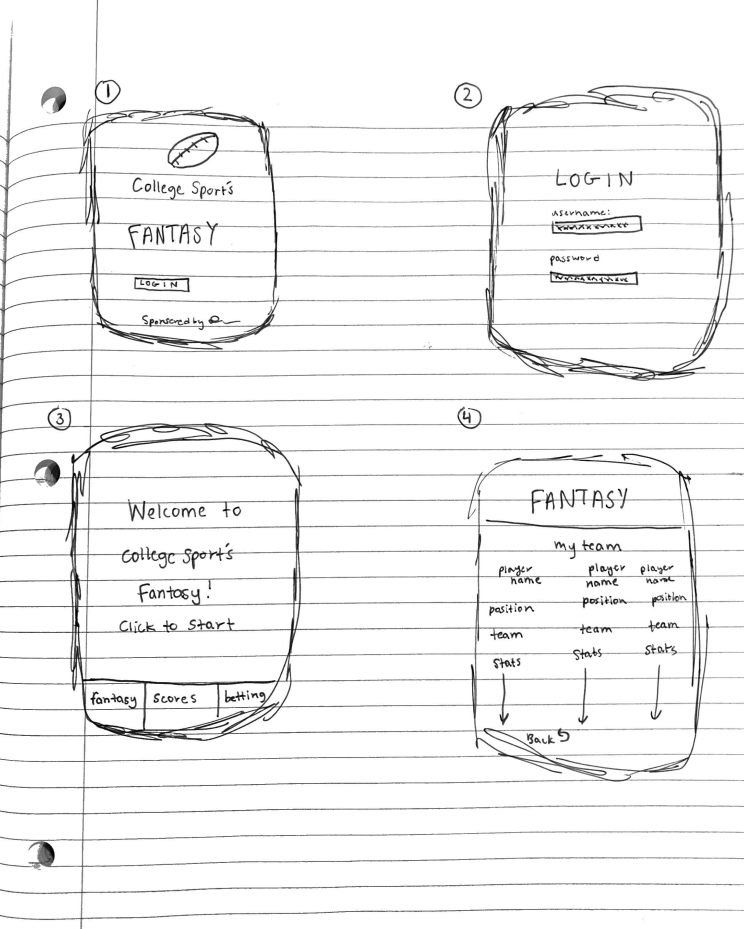 1
College Sport's
FANTASY
LOGIN
Sponsered by
2
LOGIN
username:
password
3
Welcome to
College Sport's
Fantasy!
Click to Start
fantasy scores betting
4
FANTASY
my team
player player player
name name name
position position position
team team team
stats stats stats
Back